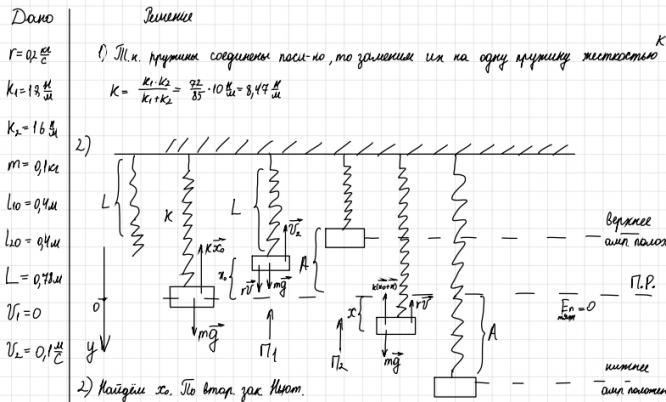 Дано
r=0,2 кг/с
K₁=18 Н/м
K₂=16 Н/м
m=0,1кг
L₁₀=0,4м
L₂₀=0,4м
L=0,78м
V₁=0
V₂=0,1 м/с
Решение
1) Т.к. пружины соединены посл-но, то заменим их на одну пружину жесткостью K
K= K₁·K₂/K₁+K₂ = 72/85 ·10 Н/м = 8,47 Н/м
2)
L K L V₂
Kx₀ x₀ A
rV mg
верхнее
амп. полож
П.Р.
Eп тяж =0
0 mg K(x₀+x) rV
x A
y П₁ П₂ mg
нижнее
амп. положен
2) Найдём x₀. По втор. зак Ньют.